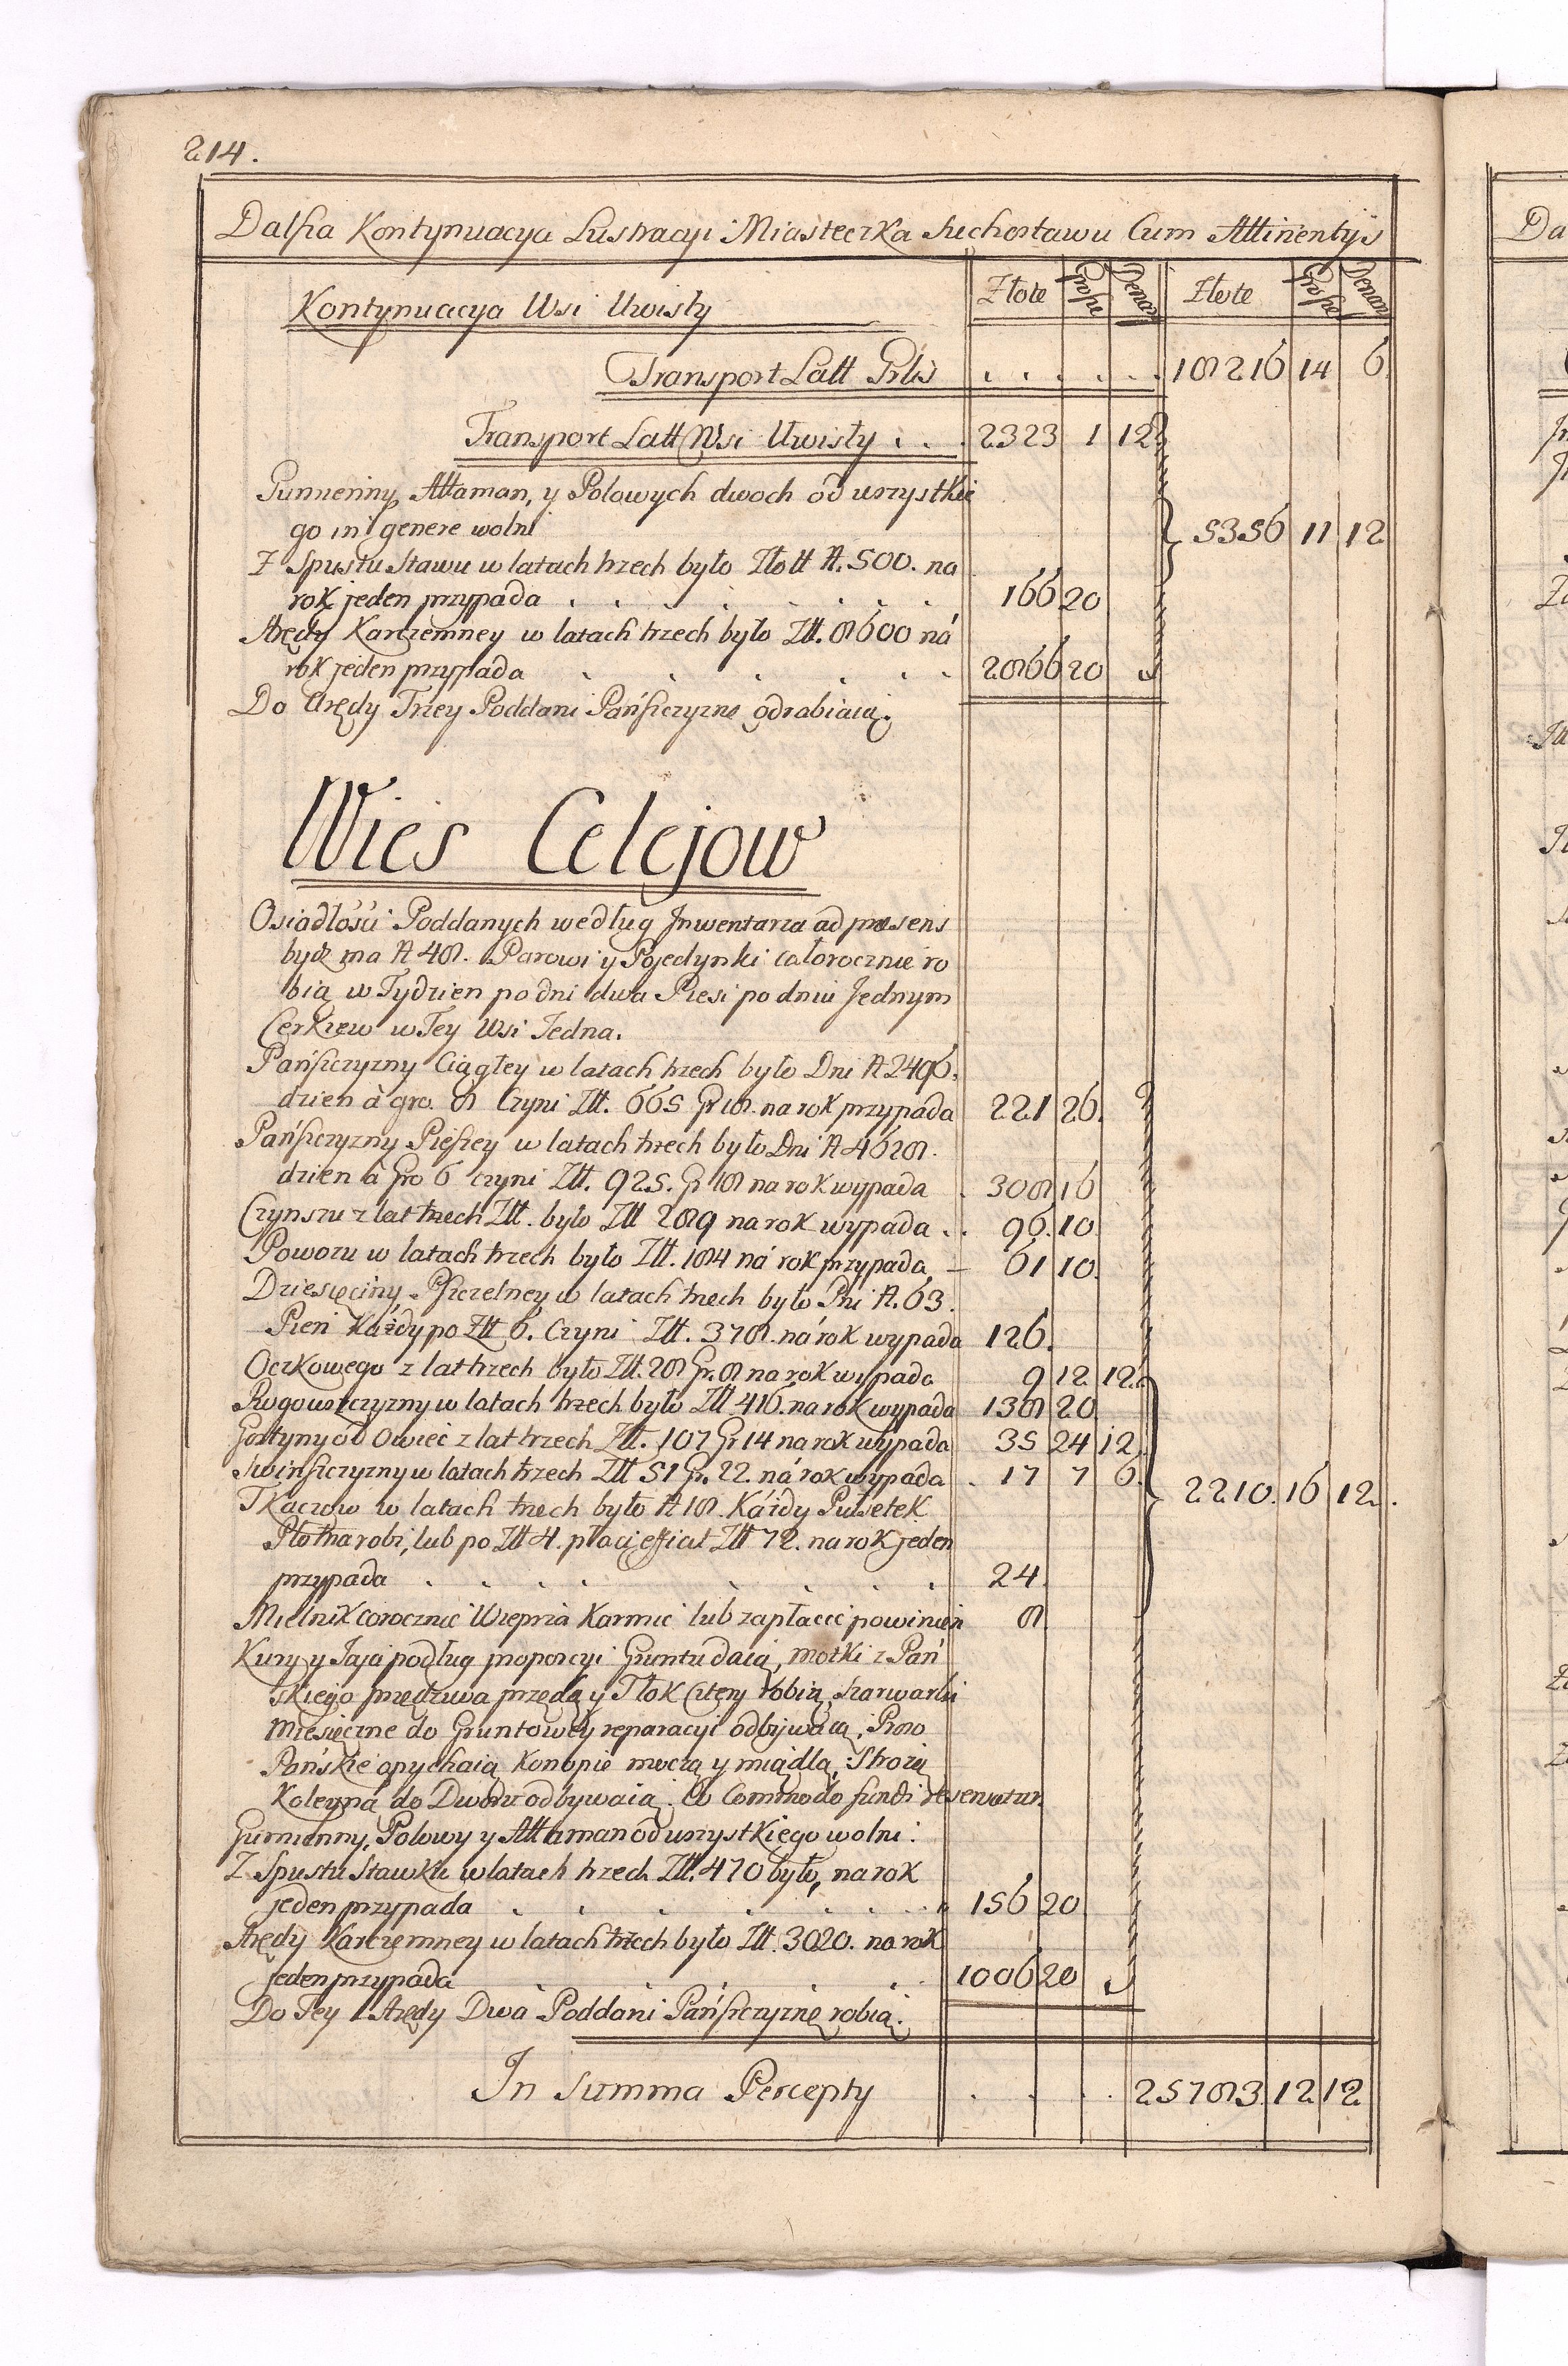 214.
Dalsza Kontynuacya Lustracyi Miasteczka Suchostawu Cum Attinentÿs
Kontynuacya Wsi Uwisły Złote Grosze Denar Złote Grosze Denar
Transport Latt Prlis . . . . . . 18216 14 6.
Transport Latt Wsi Uwisły . . . 2323 1 12
Gumienny, Attaman, y Polowych dwoch od wszystkie
go in genere wolni 5356 11 12
Z Spustu Stawu w latach trzech było Złott N. 500. na
rok jeden przypada . . . . . . . 166 20
Arędy Karczemney w latach trzech było Ztt. 8600 na
rok jeden przypada . . . . . . 2866 20
Do Arędy Trzey Poddani Pańszczyznę odrabiaią.
Wies Celejow
Osiadłości Poddanych według Jnwentarza ad præsens
bydz ma N 48. Parowi y Pojedynki całorocznie ro
bią w Tydzien po dni dwa Piesi po dniu Jednym
Cerkiew w Tey Wsi Jedna.
Pańszczyzny Ciągłey w latach trzech było Dni N 2496.
dzien à gro. 8 Czyni Ztt. 665 Gr 18. na rok przypada 221 26.
Pańszczyzny Pieszey w latach trzech było Dni N 4628.
dzien à Gro 6 czyni Ztt. 925. Gr 18 na rok wypada . 308 16
Czynszu z lat trzech Ztt. było Ztt 289 na rok wypada . . 96. 10
Powozu w latach trzech było Ztt. 184 na rok przypada — 61 10.
Dziesięciny Pszczelney w latach trzech było Pni N. 63.
Pień Każdy po Ztt 6. Czyni Ztt. 378. na rok wypada 126.
Oczkowego z lat trzech było Ztt. 28 Gr. 8 na rok wypada 9 12 12
Rogowszczyzny w latach trzech było Ztt 416. na rok wypada 138 20
Gosztyny od Owiec z lat trzech Ztt. 107 Gr 14 na rok wypada 35 24 12
Swinszczyzny w latach trzech Ztt 51 Gr. 22. na rok wypada . 17 7 6. 2210. 16 12.
Tkaczow w latach trzech było N 18. Każdy Pułsetek
Płotna robi, lub po Ztt 4. płaci efficiat Ztt 72. na rok jeden
przypada . . . . . . . . 24.
Mielnik corocznie Wieprza Karmic lub zapłacić powinien 8
Kury y Jaja podług proporcyi Gruntu daią, motki z Pań
skiego przędziwa przędą y Tłok Cztery robią, Szarwarki
Miesięczne do Gruntowey reparacyi odbywaią, Proso
Pańskie opychaią Konopie moczą y miądlą, Strożą
Koleyną do Dworu odbywaią. Co Commodo fundi reservatur.
Gumienny, Polowy y Attaman od wszystkiego wolni.
Z Spustu Stawku w latach trzech Ztt. 470 było, na rok
jeden przypada . . . . . . . 156 20
Arędy Karczemney w latach trzech było Ztt. 3020. na rok
jeden przypada . . . . . 1006 20
Do Tey Arędy Dwa Poddani Pańszczyznę robią.
In Summa Percepty . . . . 25783. 12 12
Da